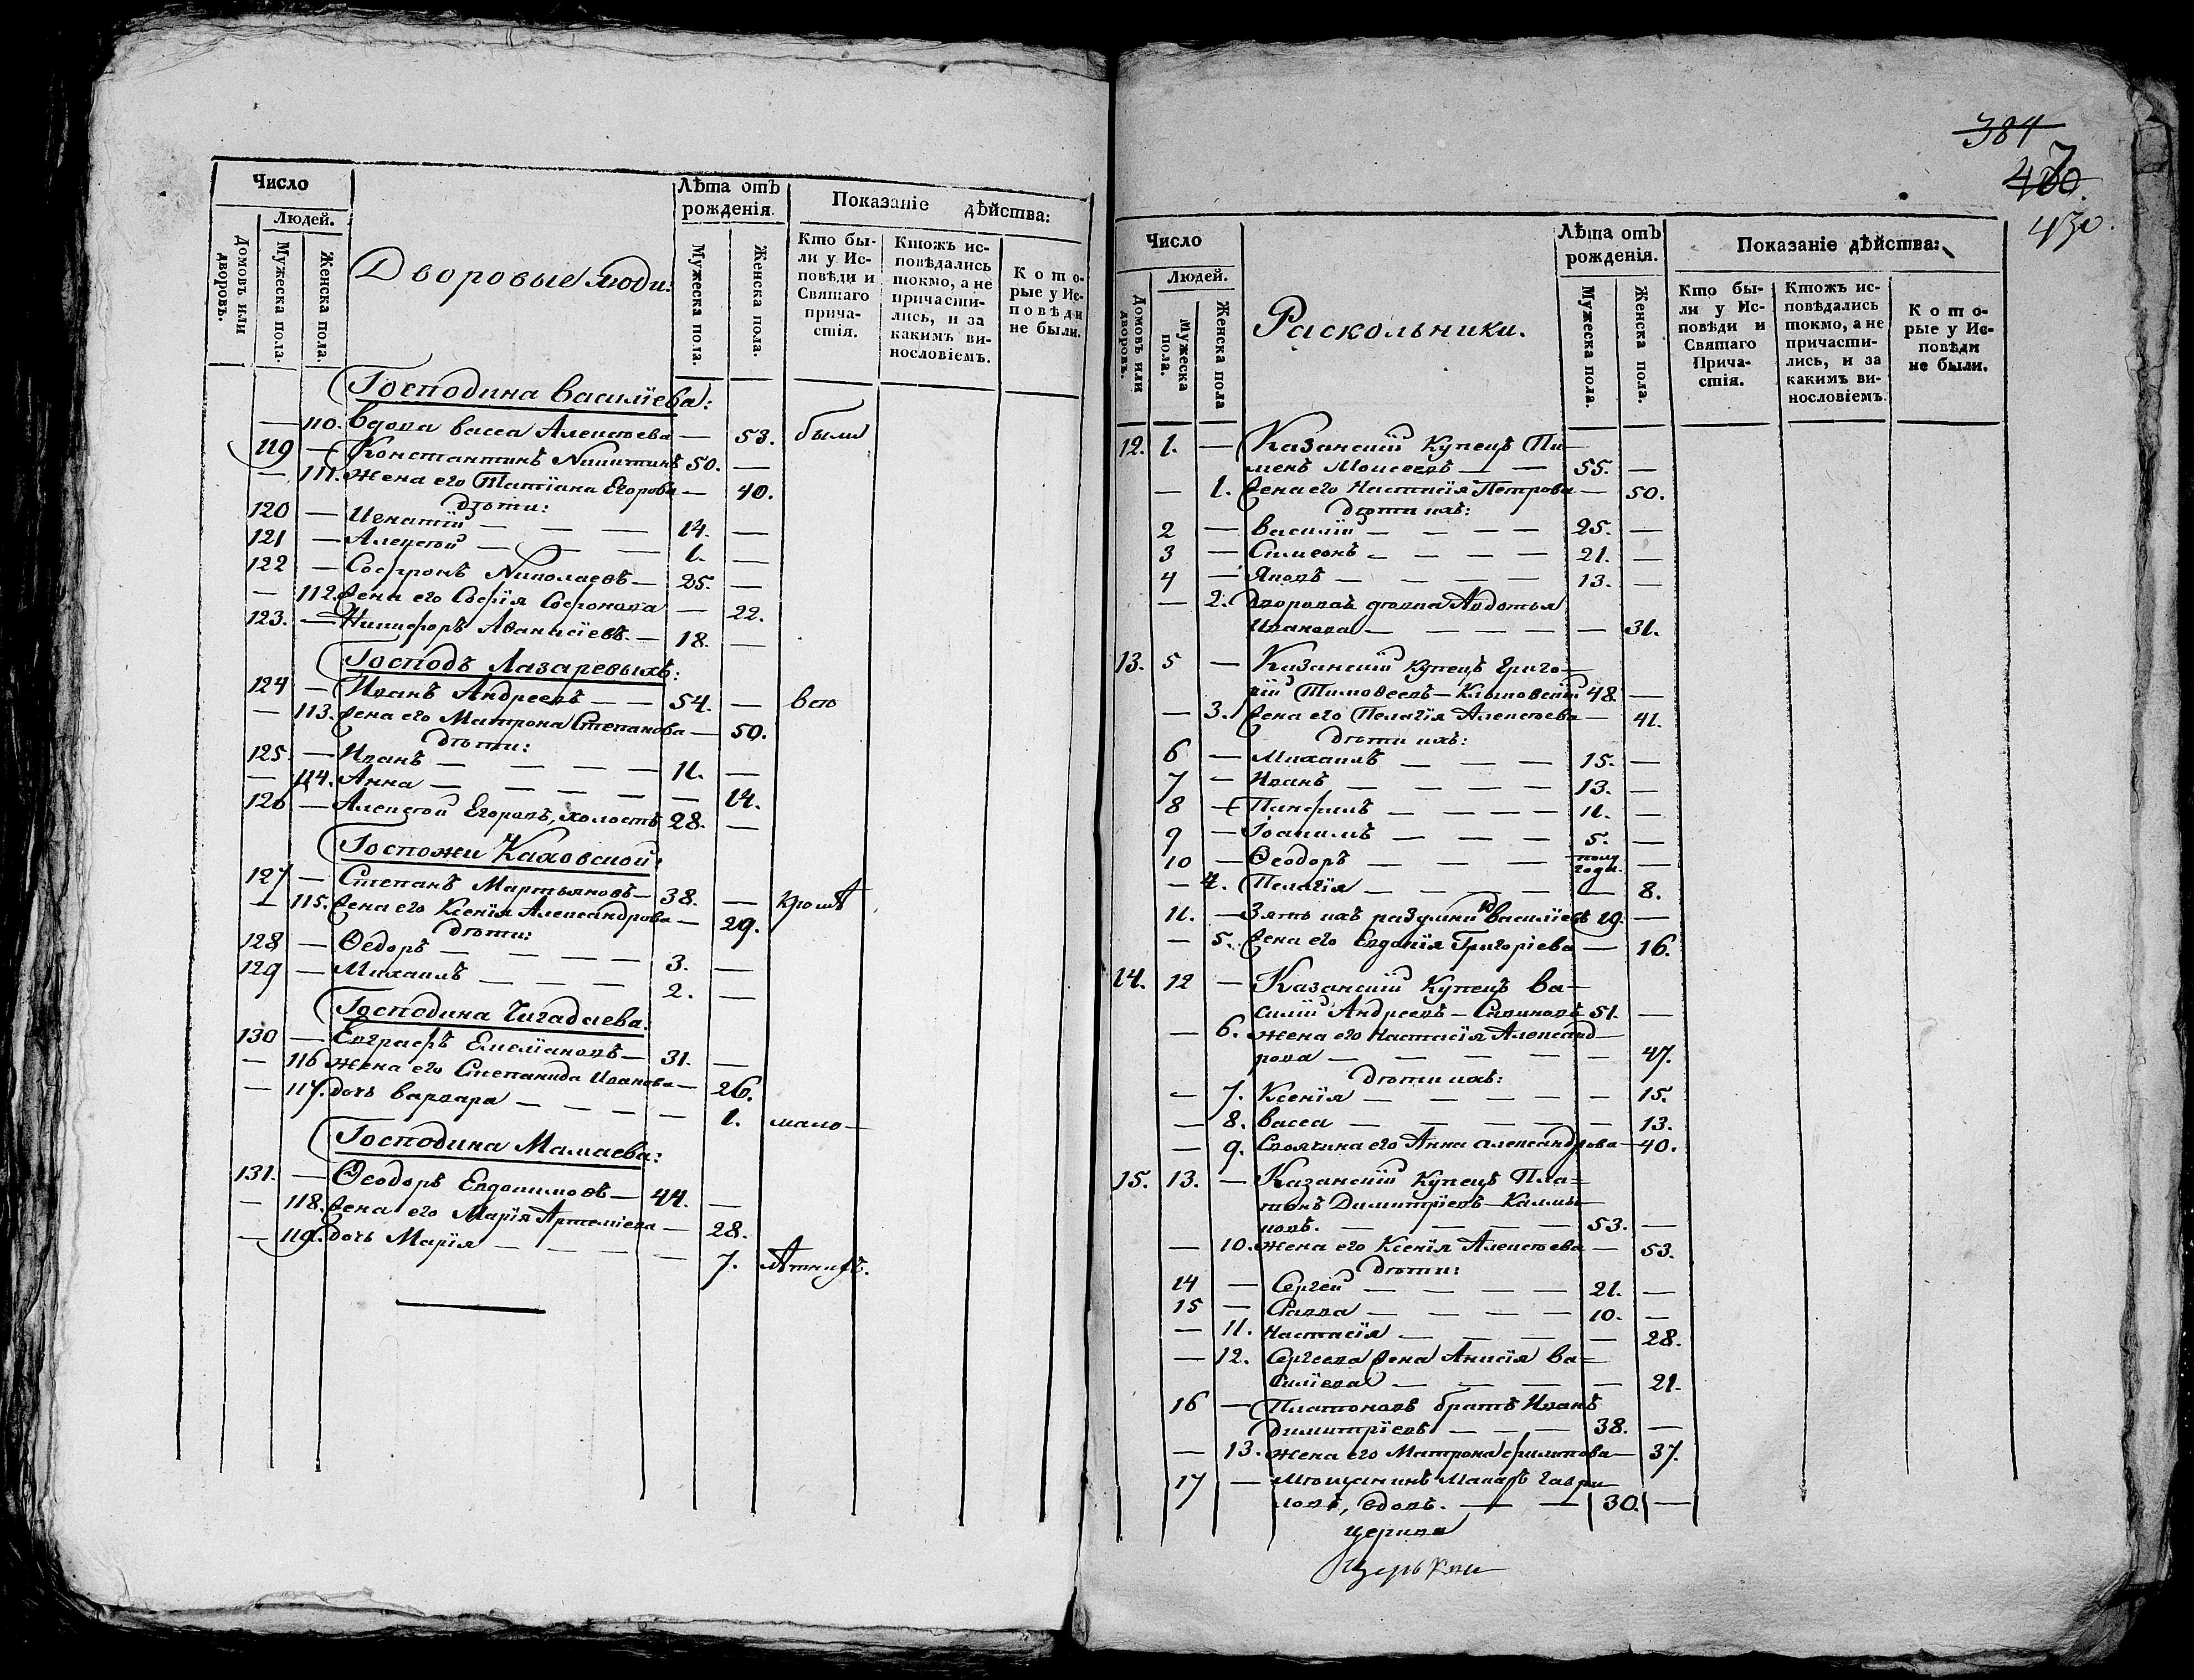 Число
Людей.
Домовъ или дворовъ.
Мужеска пола.
Женска пола.
Дворовые люди:
Лѣта отъ рожденія.
Мужеска пола.
Женска пола.
Показаніе дѣйства:
Кто бы-
ли у Ис-
повѣди и
Святаго
прича-
стія.
Ктожъ ис-
повѣдались
токмо, а не
причасти-
лись, и за
какимъ ви-
нословіемъ.
Кото-
рые у Ис-
повѣди
не были.
Господина Василіева:
— 110. Вдова Васса Алексѣева — 53. были
119 — Константинъ Никитинъ 50. —
— 111. Жена его Татіана Егорова — 40.
Дѣти:
120 — Игнатій — — — 14. —
121 — Алексѣй — — — 1. —
122 — Софронъ Николаевъ — 25. —
— 112. Жена его Софія Софонова — 22.
123. — Никифоръ Аѳанасіевъ. — 18. —
Господъ Лазаревыхъ:
124 — Иванъ Андреевъ — — 54. — всѣ
— 113. Жена его Матрона Степанова — 50.
Дѣти:
125. — Иванъ — — — — 11. —
— 114. Анна — — — — — 14.
126 — Алексѣй Егоровъ, холостъ 28. —
Госпожи Каховской:
127 — Степанъ Мартьяновъ — 38. — кромѣ
— 115. Жена его Ксенія Александрова — 29.
Дѣти:
128 — Ѳедоръ — — — — 3. —
129 — Михаилъ — — — 2. —
Господина Чигадаева.
130 — Евграфъ Емеліановъ — 31. —
— 116 Жена его Степанида Иванова — 26.
— 117. Дочь Варвара — — — — 1. мало—
Господина Мамаева:
131. — Ѳеодоръ Евдокимовъ — 44. —
— 118. Жена его Марія Артеміева — 28.
— 119. Дочь Марія — — — — — 7. лѣтнихъ.
384
430.
Число
Людей.
Домовъ или дворовъ.
Мужеска пола.
Женска пола
Раскольники.
Лѣта отъ рожденія.
Мужеска пола.
Женска пола.
Показаніе дѣйства:
Кто бы-
ли у Ис-
повѣди и
Святаго
Прича-
стія.
Ктожъ ис-
повѣдались
токмо, а не
причасти-
лись, и за
какимъ ви-
нословіемъ.
Кото-
рые у Ис-
повѣди
не были.
12. 1. — Казанскій Купецъ Пи-
менъ Моисеевъ — — 55. —
— 1. Жена его Настасія Петрова — 50.
Дѣти ихъ:
2 — Василій — — — — 25. —
3 — Симеонъ — — — — 21. —
4 — Яковъ — — — — 13. —
— 2. Дворовая дѣвка Авдотья
Иванова — — — — — 31.
13. 5 — Казанскій Купецъ Григо-
рій Тимоѳеевъ — 48. —
— 3. Жена его Пелагія Алексѣева — 41.
Дѣти ихъ:
6 — Михаилъ — — — 15. —
7 — Иванъ — — — — 13. —
8 — Панфилъ — — — — 11. —
9 — Іоакимъ — — — — 5. —
10 — Ѳеодоръ — — — полгода. —
— 4. Пелагія — — — — — 8.
11. — Зять ихъ Василіевъ 19. —
— 5. Жена его Евдокія Григоріева — 16.
14. 12 — Казанскій Купецъ Ва-
силій Андреевъ — Савиновъ 51. —
— 6. Жена его Настасія Александ-
рова — — — — — 47.
Дѣти ихъ:
— 7. Ксенія — — — — — 15.
— 8. Васса — — — — — 13.
— 9. Своячина его Анна Александрова — 40.
15. 13. — Казанскій Купецъ Пла-
тонъ Димитріевъ — Калмы-
ковъ. — — — — 53. —
— 10. Жена его Ксенія Алексѣева — 53.
Дѣти:
14 — Сергѣй — — — — 21. —
15 — Савва — — — — 10. —
— 11. Настасія — — — — 28.
— 12. Сергѣева Жена Анисія Ва-
силіева — — — — — 21.
16 — Платоновъ братъ Иванъ
Димитріевъ — — — 38. —
— 13. Жена его Матрона Филипова — 37.
17 — Мѣщанинъ Макаръ Гаври-
ловъ, вдовъ. — — 30. —
Церкви
Церькви